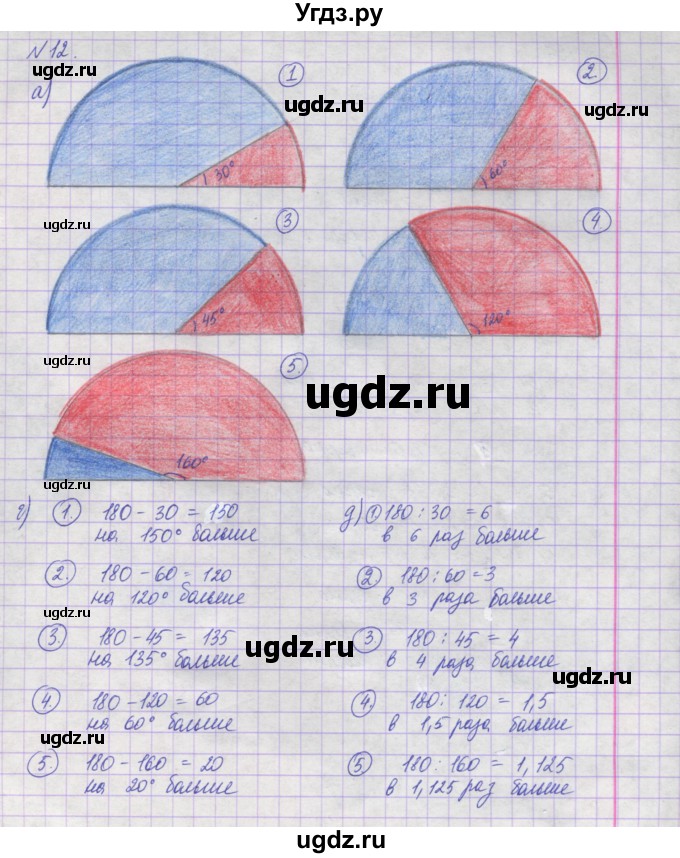 Угдз.ру
N 12.
ugdz.ru
а)
1
ugdz.ru
30°
2.
ugdz.ru
60°
3
ugdz.ru
45°
4.
ugdz.ru
120°
5.
ugdz.ru
ugdz.ru
160°
ugdz.ru
г) 1. 180 - 30 = 150
на 150° больше
2. 180 - 60 = 120
на 120° больше
3. 180 - 45 = 135
на 135° больше
4. 180 - 120 = 60
на 60° больше
5. 180 - 160 = 20
на 20° больше
д) 1 180 : 30 = 6
в 6 раз больше
2 180 : 60 = 3
в 3 раза больше
3 180 : 45 = 4
в 4 раза больше
4. 180 : 120 = 1,5
в 1,5 раза больше
5 180 : 160 = 1,125
в 1,125 раз больше
ugdz.ru
ugdz.ru
ugdz.ru
ugdz.ru
ugdz.ru
ugdz.ru